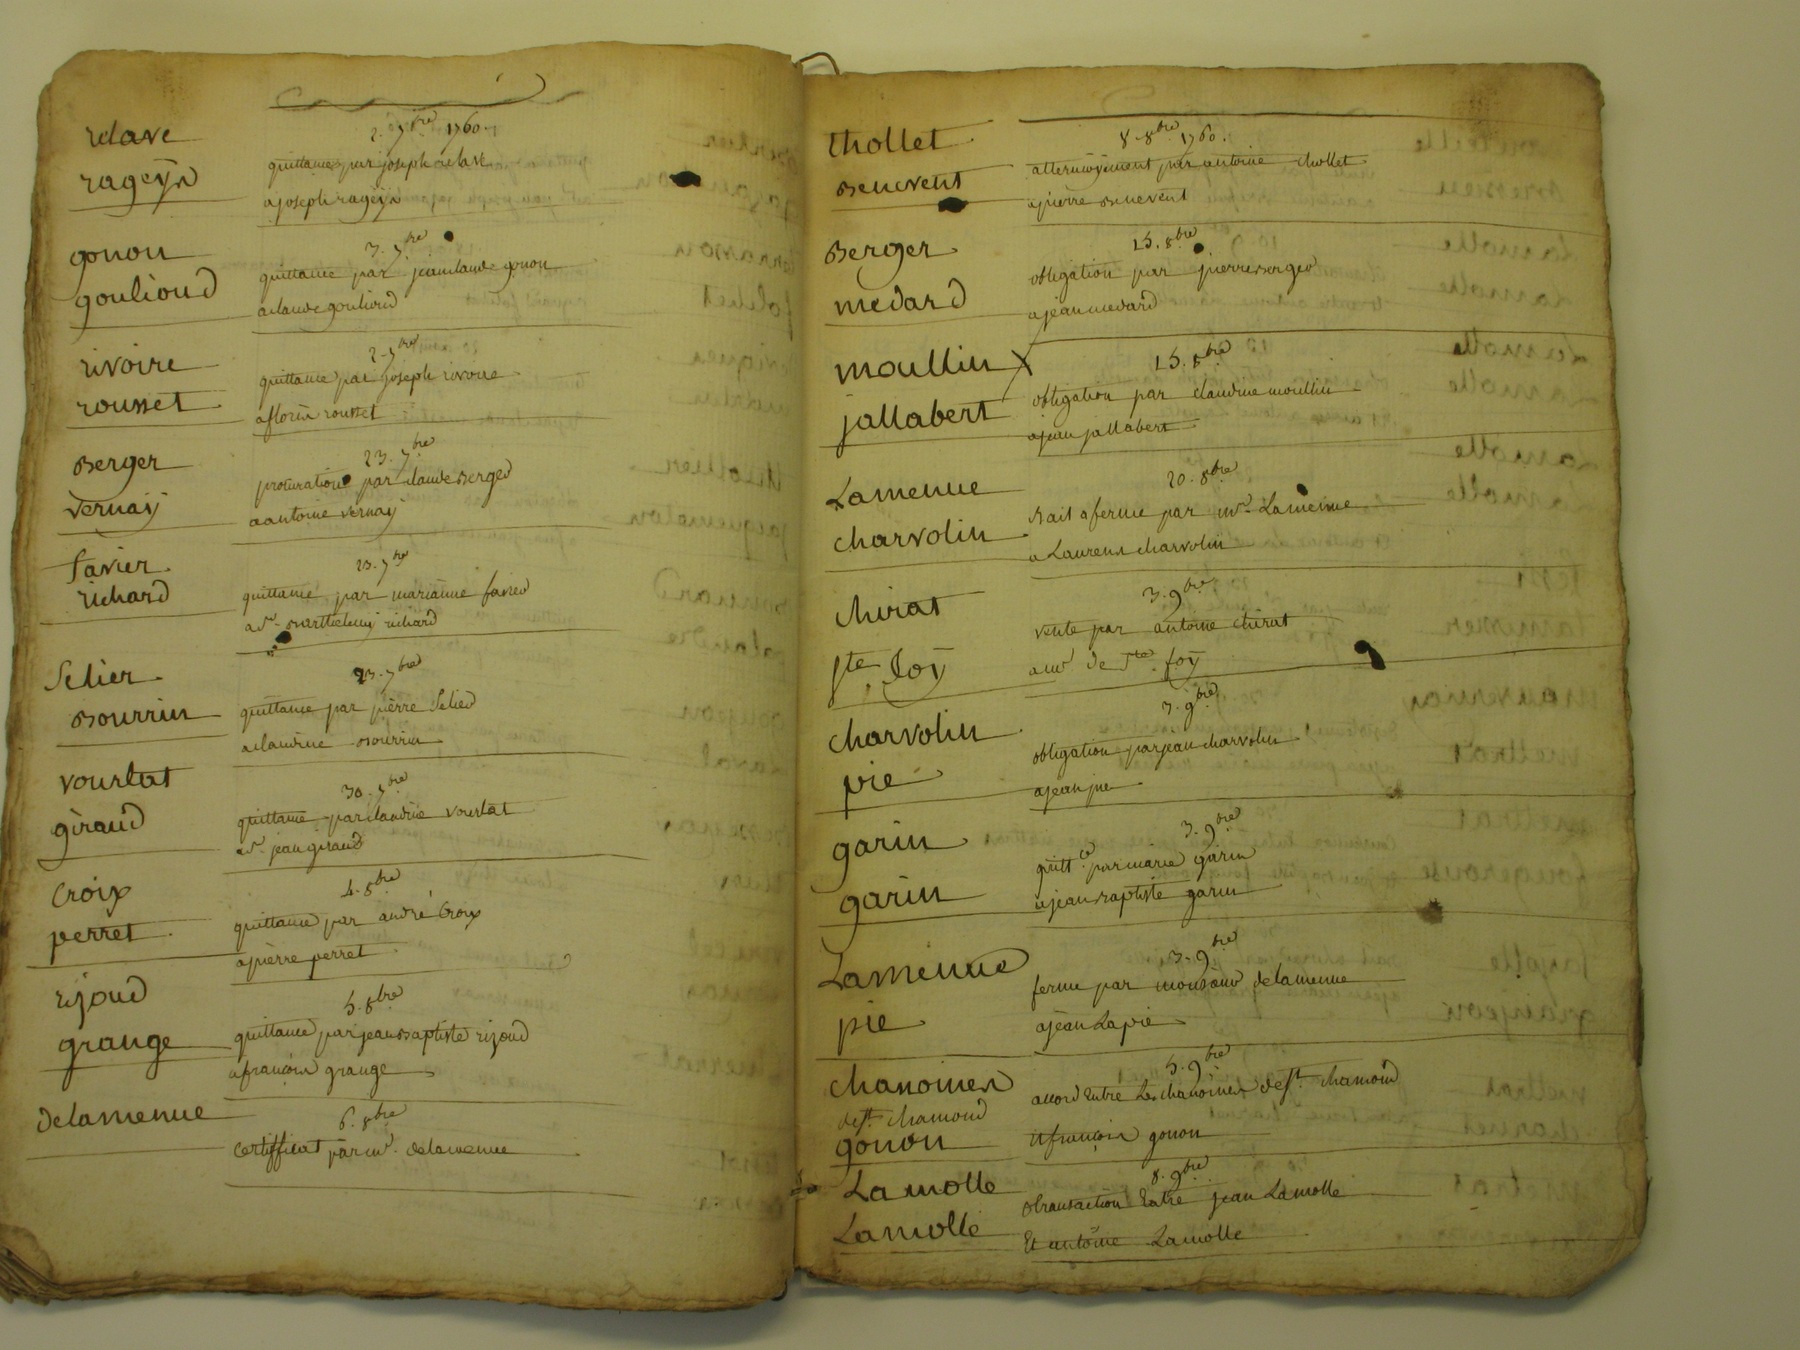 relave
rageÿs
2. 7bre 1760.
quittance par joseph relave
a joseph rageÿs
gonon
goulioud
3. 7bre
quittance par jeanclaude gonon
a claude goulioud
rivoire
rousset
2. 7bre
quittance par joseph rivoire
a florin rousset
Berger
vernaÿ
23. 7bre
procuration par claude Berged
a antoine vernaÿ
favier
richard
23. 7bre
quittance par marianne favier
a sr. Barthelemy richard
Selier
Bourrin
23. 7bre
quittance par pierre Selier
a claudine Bourrin
vourlat
giraud
30. 7bre
quittance par claudine vourlat
a sr. jean giraud
Croix
perret
4. 8bre
quittance par andré Croix
a pierre perret
rijoud
grange
5. 8bre
quittance par jean Baptiste rijoud
a françois grange
delamenue
6. 8bre
certifficat par mr. delamenue
thollet
Benevent
8. 8bre 1760.
attermoÿement par antoine thollet
a pierre Benevent
Berger
medard
15. 8bre
obligation par pierre Berger
a jean medard
moullin
jallabert
15. 8bre
obligation par claudine moullin
a jean jallabert
Lamenue
charvolin
20. 8bre
Bail a ferme par mr. Lamenue
a Laurens charvolin
chirat
ste foÿ
3. 9bre
vente par antoine chirat
a mr de ste foÿ
charvolin
pie
3. 9bre
obligation par jean charvolin
a jean pie
garin
garin
3. 9bre
quittce par marie garin
a jean Baptiste garin
Lamenue
pie
3. 9bre
ferme par monsieur delamenue
a jean Lapie
chanoines
de st. chamond
gonon
5. 9bre
accord Entre Les chanoines de st. chamond
et françois gonon
Lamolle
Lamolle
8. 9bre
transaction Entre jean Lamolle
Et antoine Lamolle